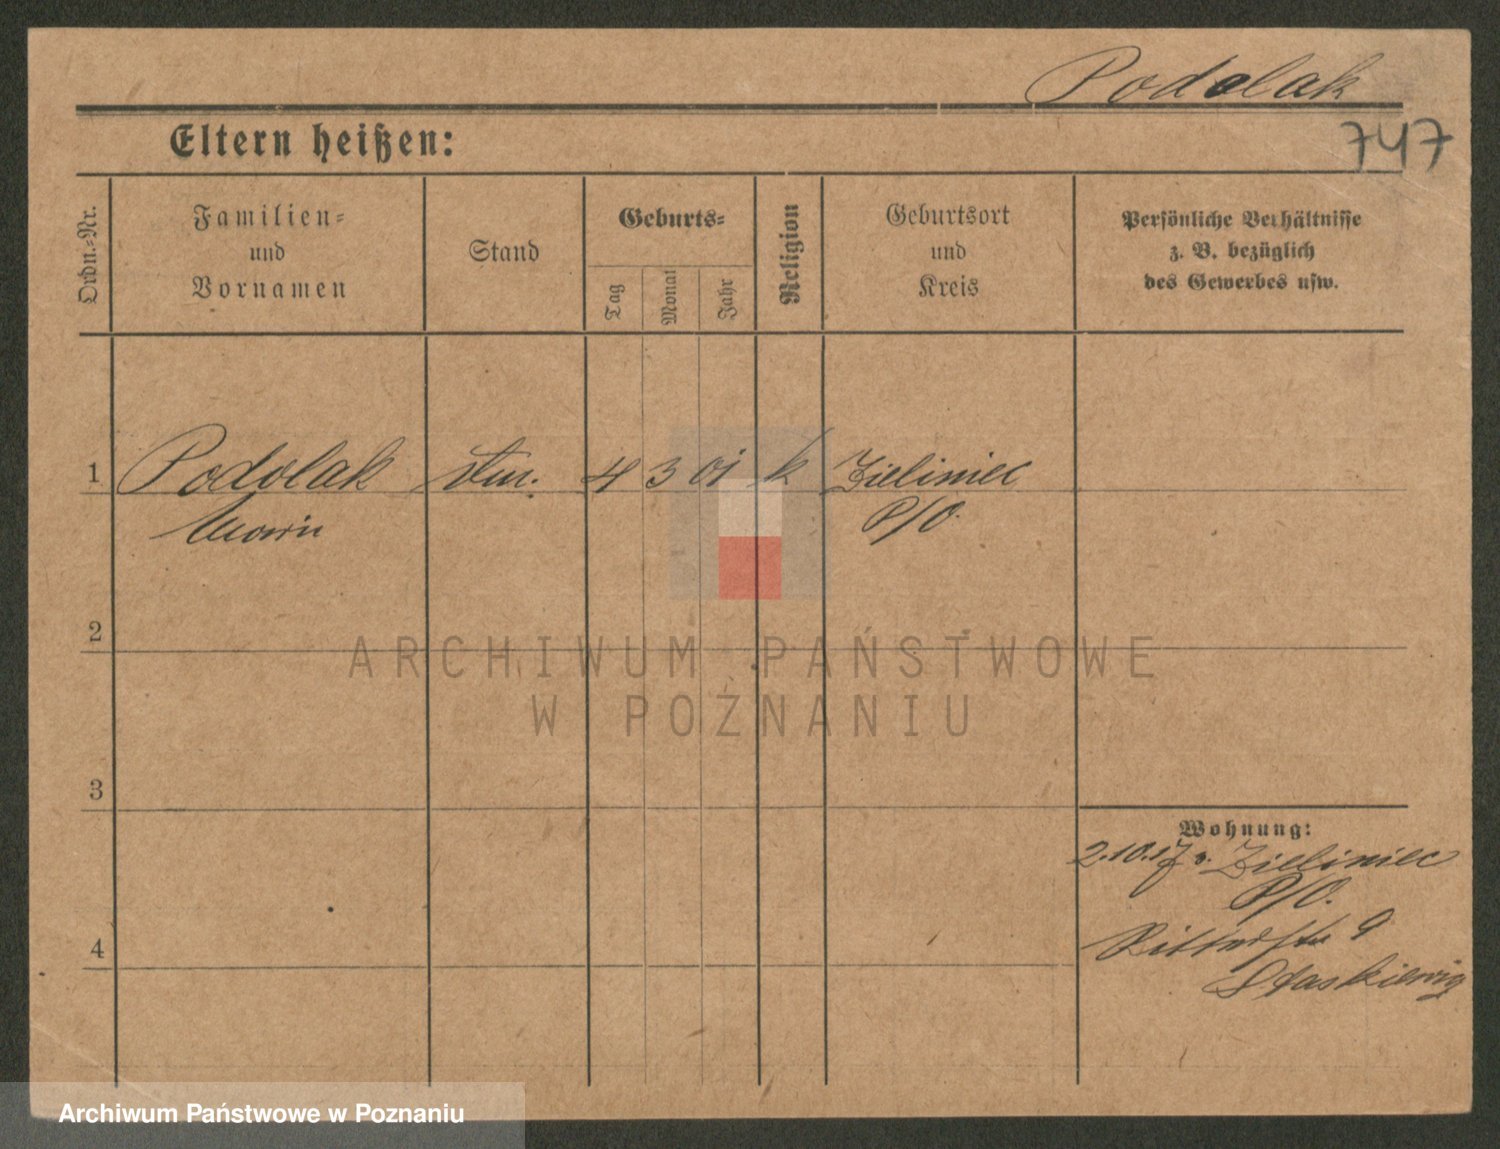 Podolak
747
Eltern heißen:
Ordn.-Nr.
Familien-
und
Vornamen
Stand
Geburts-
Tag
Monat
Jahr
Religion
Geburtsort
und
Kreis
Persönliche Verhältnisse
z. B. bezüglich
des Gewerbes usw.
1
Podolak
4 3 01 k
Zieliniec
P/O.
2
ARCHIWUM PAŃSTWOWE
W POZNANIU
3
Wohnung:
2.10.17 v. Zieliniec
P/O.
Ritterstr 9
4
Archiwum Państwowe w Poznaniu